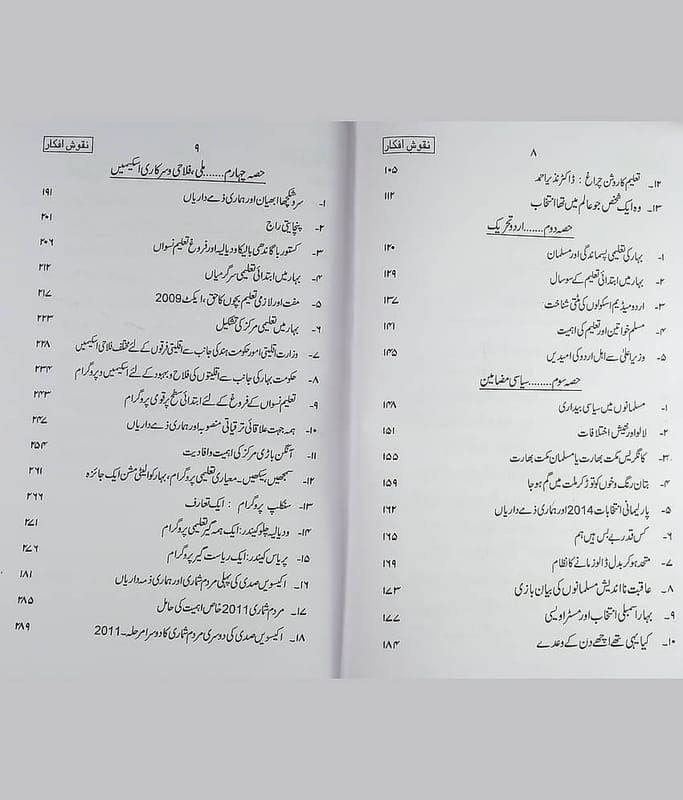 نقوش افکار
۸
۱۲۔ تعلیم کا روشن چراغ : ڈاکٹر نذیر احمد ۱۰۵
۱۳۔ وہ ایک شخص جو عالم میں تھا انتخاب ۱۱۲
حصہ دوم.......اردو تحریک
۱۔ بہار کی تعلیمی پسماندگی اور مسلمان ۱۲۰
۲۔ بہار میں ابتدائی تعلیم کے سو سال ۱۲۹
۳۔ اردو میڈیم اسکولوں کی مٹتی شناخت ۱۳۷
۴۔ مسلم خواتین اور تعلیم کی اہمیت ۱۴۱
۵۔ وزیر اعلیٰ سے اہل اردو کی امیدیں ۱۴۵
حصہ سوم........سیاسی مضامین
۱۔ مسلمانوں میں سیاسی بیداری ۱۴۸
۲۔ لالو اور نتیش اختلافات ۱۵۱
۳۔ کانگریس مکت بھارت یا مسلمان مکت بھارت ۱۵۵
۴۔ بتان رنگ و خوں کو توڑ کر ملت میں گم ہو جا ۱۵۹
۵۔ پارلیمانی انتخابات 2014 اور ہماری ذمے داریاں ۱۶۲
۶۔ کس قدر بے بس ہیں ہم ۱۶۵
۷۔ متحد ہو کر بدل ڈالو زمانے کا نظام ۱۶۹
۸۔ عاقبت نا اندیش مسلمانوں کی بیان بازی ۱۷۳
۹۔ بہار اسمبلی انتخاب اور مسٹر اویسی ۱۷۷
۱۰۔ کیا یہی تھے اچھے دن کے وعدے ۱۸۴
۹
نقوش افکار
حصہ چہارم.......ملی، فلاحی و سرکاری اسکیمیں
۱۔ سرو شکچھا ابھیان اور ہماری ذمے داریاں ۱۹۱
۲۔ پنچایتی راج ۲۰۱
۳۔ کستوربا گاندھی بالیکا ودیالیہ اور فروغ تعلیم نسواں ۲۰۶
۴۔ بہار میں ابتدائی تعلیمی سرگرمیاں ۲۱۲
۵۔ مفت اور لازمی تعلیم بچوں کا حق، ایکٹ 2009 ۲۱۷
۶۔ بہار میں تعلیمی مرکز کی تشکیل ۲۲۳
۷۔ وزارت اقلیتی امور حکومت ہند کی جانب سے اقلیتی فرقوں کے لئے مختلف فلاحی اسکیمیں ۲۲۸
۸۔ حکومت بہار کی جانب سے اقلیتوں کی فلاح و بہبود کے لئے اسکیمیں و پروگرام ۲۳۴
۹۔ تعلیم نسواں کے فروغ کے لئے ابتدائی سطح پر قومی پروگرام ۲۴۳
۱۰۔ ہمہ جہت علاقائی ترقیاتی منصوبہ اور ہماری ذمے داریاں ۲۴۷
۱۱۔ آنگن باڑی مرکز کی اہمیت و افادیت ۲۵۴
۱۲۔ سمجھیں سیکھیں۔ معیاری تعلیمی پروگرام، بہار کوالیٹی مشن ایک جائزہ ۲۶۱
۱۳۔ سنکلپ پروگرام : ایک تعارف ۲۶۶
۱۴۔ ودیالیہ چلو کیندر: ایک ہمہ گیر تعلیمی پروگرام ۲۷۱
۱۵۔ پریاس کیندر: ایک ریاست گیر پروگرام ۲۷۶
۱۶۔ اکیسویں صدی کی پہلی مردم شماری اور ہماری ذمہ داریاں ۱۸۱
۱۷۔ مردم شماری 2011 خاص اہمیت کی حامل ۲۸۵
۱۸۔ اکیسویں صدی کی دوسری مردم شماری کا دوسرا مرحلہ۔ 2011 ۲۸۹